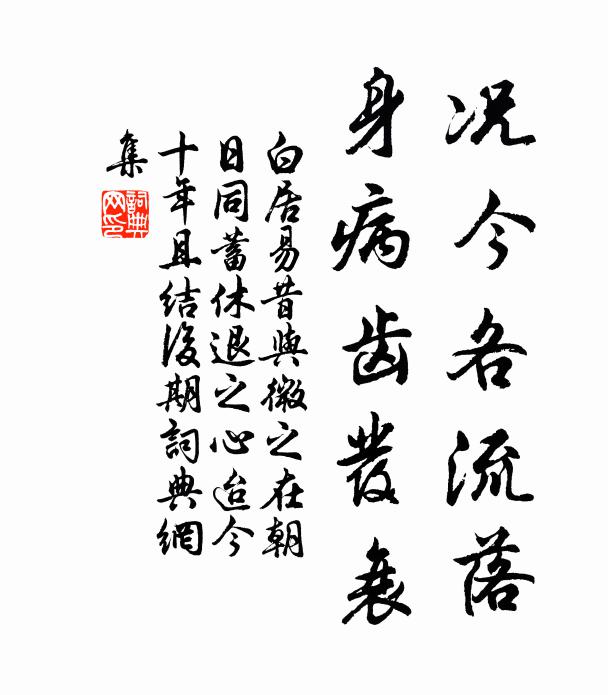 况今各流落
身病齿發衰
白居易昔與微之在朝
日同蓄休退之心迨今
十年且結後期詞典網
集
詞典
网印